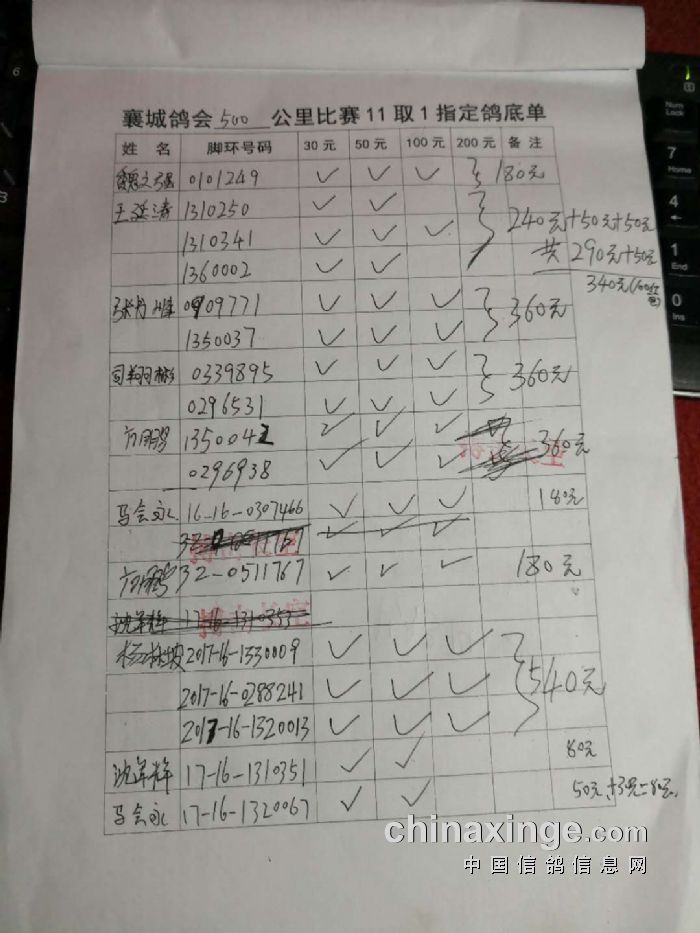 襄城鸽会 500 公里比赛 11 取 1 指定鸽底单
姓 名 脚环号码 30 元 50 元 100 元 200 元 备 注
魏文强 0101249 ✓ ✓ ✓ 180元
王延涛 1310250 ✓ ✓
1310341 ✓ ✓ ✓ 240元+50元+50元
1360002 ✓ ✓ 共 290元+50元
340元
0909771 ✓ ✓ ✓ 360元
1350037 ✓ ✓ ✓
司翔彬 0339895 ✓ ✓ ✓ 360元
0296531 ✓ ✓ ✓
方用鹏 1350042 ✓ ✓ ✓
0296938 ✓ ✓ ✓ 360元
马会永 16-16-0307466 ✓ ✓ ✓ 180元
✓ ✓ ✓
方用鹏 32-0511767 ✓ ✓ ✓ 180元
沈军辉 17-16-1310353
杨松坡 2017-16-1330009 ✓ ✓ ✓
2017-16-0288241 ✓ ✓ ✓ 540元
2017-16-1320013 ✓ ✓ ✓
沈军辉 17-16-1310351 ✓ ✓ 80元
马会永 17-16-1320067 ✓ ✓ 50元+30元=80元
chinaxinge.com
中国信鸽信息网
Num
Lock
7
Home
4
1
End
0
Ins
6